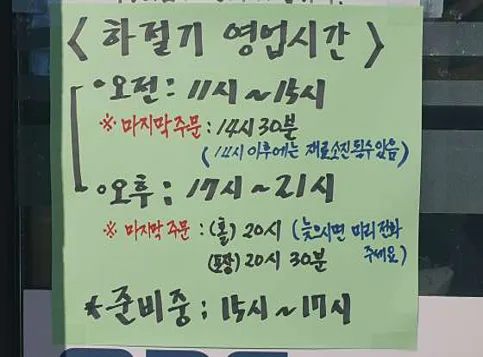 < 하절기 영업시간 >
• 오전 : 11시 ~ 15시
※ 마지막 주문 : 14시 30분
(14시 이후에는 재료소진 될수 있음)
• 오후 : 17시 ~ 21시
※ 마지막 주문 : (홀) 20시 (늦으시면 미리 전화
(포장) 20시 30분 주세요)
* 준비중 : 15시 ~ 17시